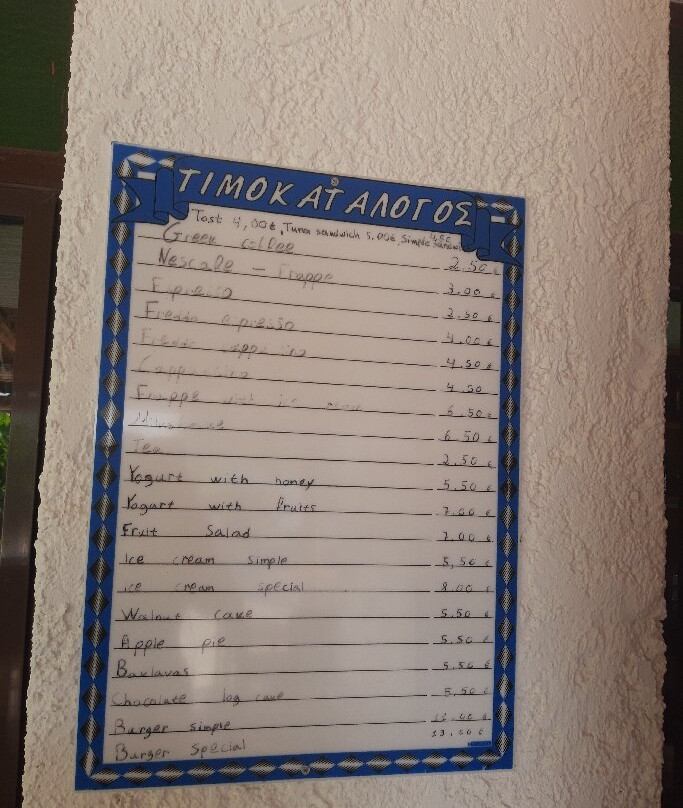 ΤΙΜΟΚΑΤΑΛΟΓΟΣ
Tost 4,00€, Tuna sandwich 5.00€, Simple sandwich 4,50
Greek coffee 2.50 €
Nescafe - Frappe 3.00 €
Espresso 2.50 €
Freddo espresso 4.00 €
Freddo cappuccino 4.50 €
Cappuccino 4.50
Frappe with ice cream 6.50 €
6.50 €
Tea 2.50 €
Yogurt with honey 5.50 €
Yogurt with fruits 7.00 €
Fruit Salad 7.00 €
Ice cream simple 5,50 €
ice cream special 8.00 €
Walnut cake 5.50 €
Apple pie 5.50 €
Baklavas 5.50 €
Chocolate log cake 5,50 €
Burger simple
Burger Special 13.00 €